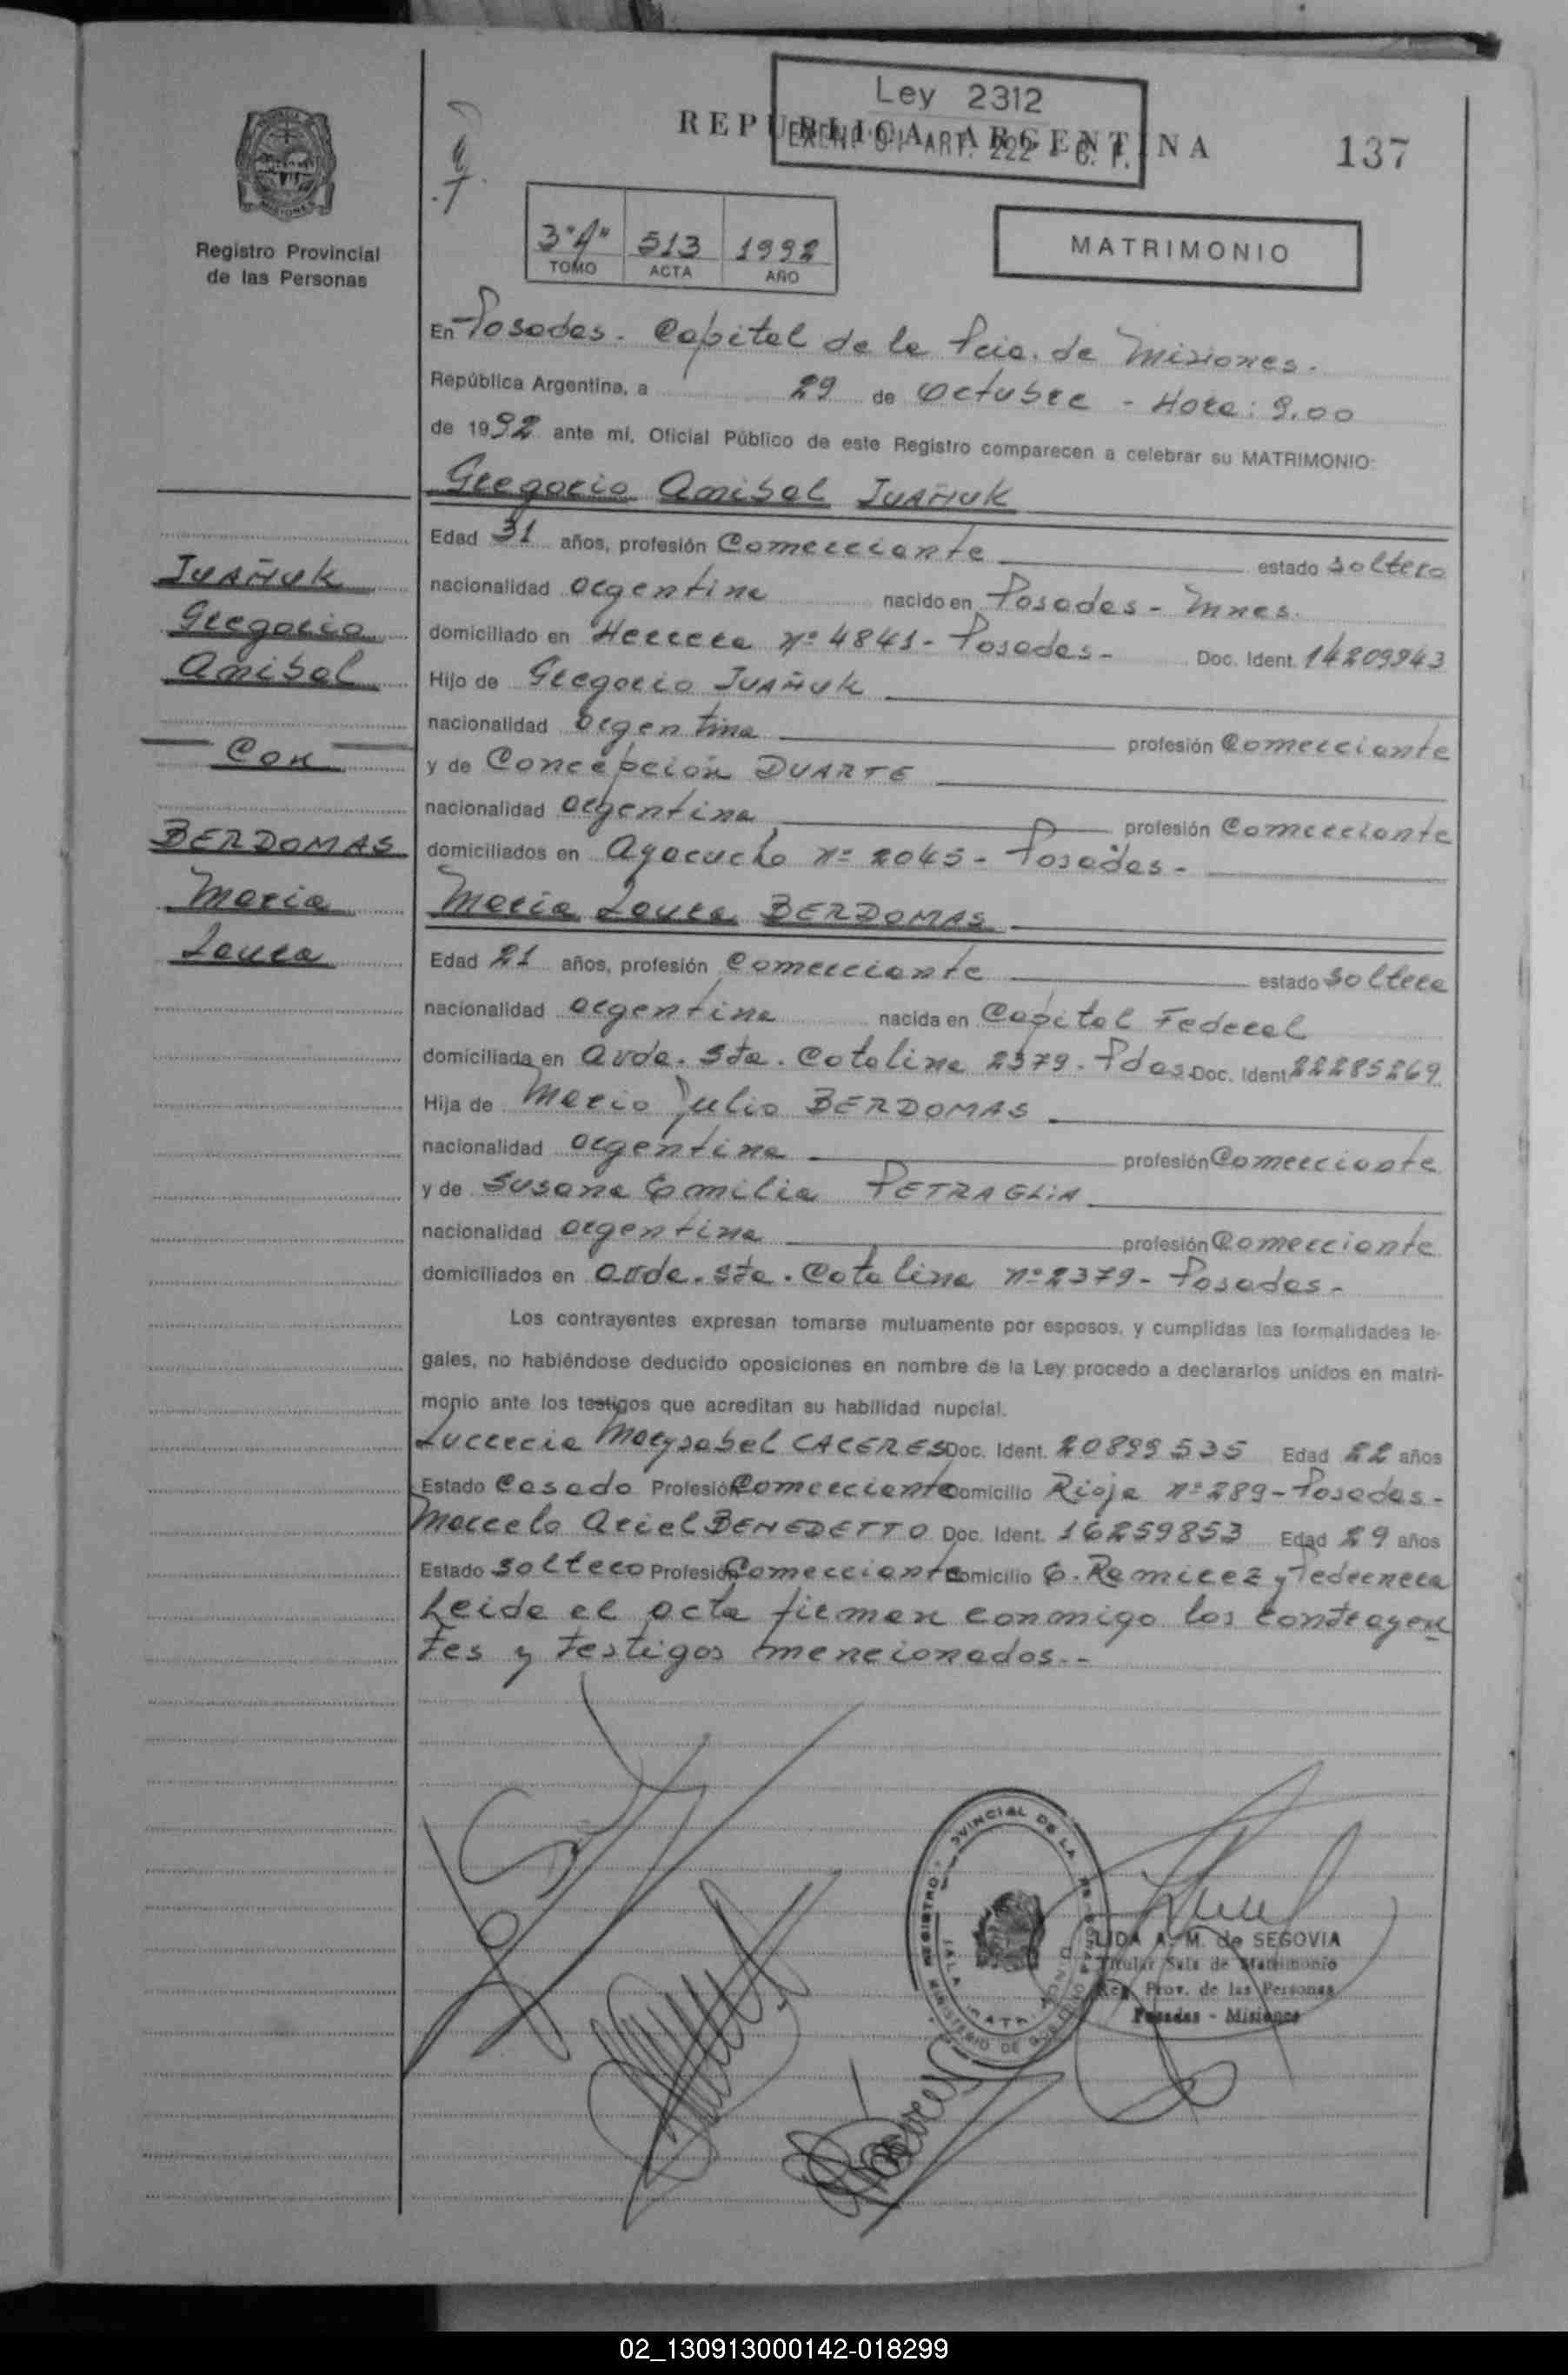 Ley 2312
REPUBLICA ARGENTINA
ART. 222 - C. F.
137
Registro Provincial
de las Personas
3º"A" 513 1992
TOMO ACTA AÑO
MATRIMONIO
En Posadas. Capital de la Pcia. de Misiones.
República Argentina, a 29 de Octubre - Hora: 9.00
de 1992 ante mí, Oficial Público de este Registro comparecen a celebrar su MATRIMONIO:
Gregorio Anibal IVAÑUK
Edad 31 años, profesión Comerciante estado soltero
IVAÑUK
Gregorio
Anibal
Con
BERDOMAS
Maria
Laura
nacionalidad argentina nacido en Posadas - Mnes.
domiciliado en Herrera nº 4841 - Posadas - Doc. Ident. 14209943
Hijo de Gregorio IVAÑUK
nacionalidad argentina profesión Comerciante
y de Concepción DUARTE
nacionalidad argentina profesión Comerciante
domiciliados en Ayacucho nº 2045 - Posadas -
Maria Laura BERDOMAS
Edad 21 años, profesión Comerciante estado soltera
nacionalidad argentina nacida en Capital Federal
domiciliada en Avda. Sta. Catalina 2379 - Pdas. Doc. Ident. 22285269
Hija de Mario Julio BERDOMAS
nacionalidad argentina profesión Comerciante
y de Susana Emilia PETRAGLIA
nacionalidad argentina profesión Comerciante
domiciliados en Avda. Sta. Catalina nº 2379 - Posadas -
Los contrayentes expresan tomarse mutuamente por esposos, y cumplidas las formalidades le-
gales, no habiéndose deducido oposiciones en nombre de la Ley procedo a declararlos unidos en matri-
monio ante los testigos que acreditan su habilidad nupcial.
Lucrecia Marysabel CACERES Doc. Ident. 20899535 Edad 22 años
Estado Casado Profesión Comerciante Domicilio Rioja nº 289 - Posadas -
Marcelo Ariel BENEDETTO Doc. Ident. 16259853 Edad 29 años
Estado soltero Profesión Comerciante Domicilio G. Ramirez y Pedernera
Leida el acta firman conmigo los contrayen
tes y testigos mencionados.-
LIDA A. M. de SEGOVIA
Titular Sala de Matrimonio
Reg. Prov. de las Personas
Posadas - Misiones
02_130913000142-018299